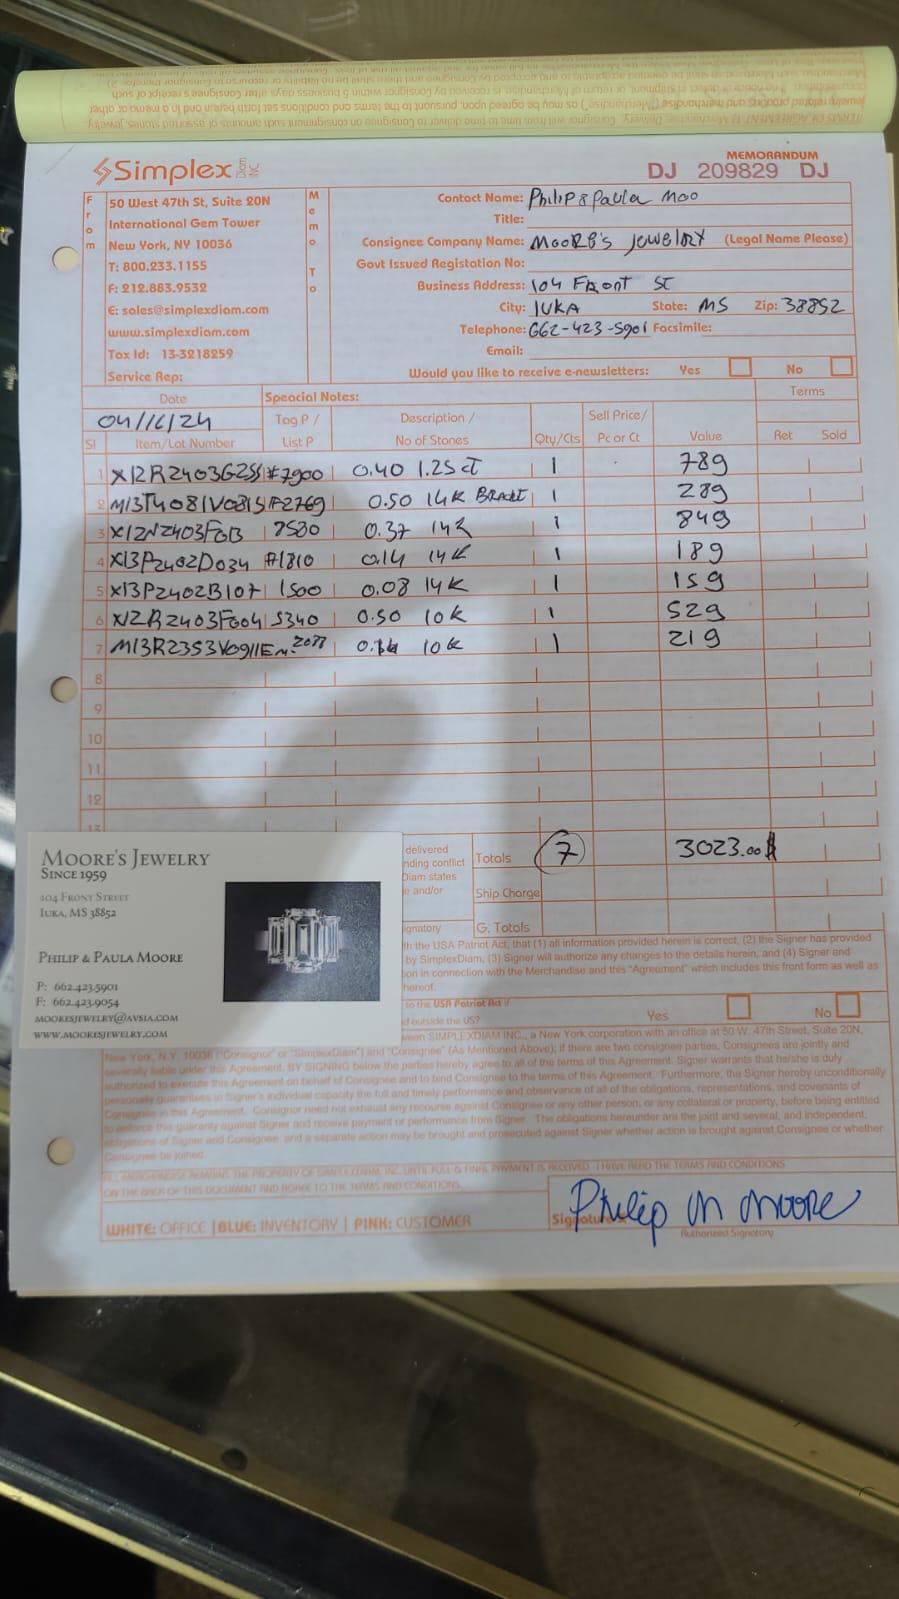 Simplex DIAM INC
MEMORANDUM
DJ 209829 DJ
From
50 West 47th St, Suite 20N
International Gem Tower
New York, NY 10036
T: 800.233.1155
F: 212.883.9532
E: sales@simplexdiam.com
www.simplexdiam.com
Tax Id: 13-3218259
Service Rep:
Memo To
Contact Name: Philip & Paula Moo
Title:
Consignee Company Name: Moore's Jewelry (Legal Name Please)
Govt Issued Registation No:
Business Address: 104 Front St
City: IUKA State: MS Zip: 38852
Telephone: 662-423-5901 Facsimile:
Email:
Would you like to receive e-newsletters: Yes No
Date Speacial Notes: Terms
04/16/24
Sl Item/Lot Number Tag P / List P Description / No of Stones Qty/Cts Sell Price/ Pc or Ct Value Ret Sold
1 X12R2403G2SS #7900 0.40 1.25 CT 1 789
2 M13T4081V081S #2769 0.50 14K Bracet 1 289
3 X12N2403FGB 8530 0.37 14K 1 849
4 X13P2402D034 #1810 0.14 14K 1 189
5 X13P2402B107 1500 0.08 14K 1 159
6 X12R2403FG04 5340 0.50 10K 1 529
7 10K 1 219
8
9
10
11
12
13
delivered
nding conflict
Diam states
e and/or
ignatory
Totals 7 3023.00
Ship Charge
G. Totals
th the USA Patriot Act, that (1) all information provided herein is correct, (2) the Signer has provided
by SimplexDiam, (3) Signer will authorize any changes to the details herein, and (4) Signer and
ion in connection with the Merchandise and this "Agreement" which includes this front form as well as
hereof.
to the USA Patriot Act if
d outside the US? Yes No
ween SIMPLEXDIAM INC., a New York corporation with an office at 50 W. 47th Street, Suite 20N,
New York, N.Y. 10036 ("Consignor" or "SimplexDiam") and "Consignee" (As Mentioned Above); if there are two consignee parties, Consignees are jointly and
severally liable under this Agreement. BY SIGNING below the parties hereby agree to all of the terms of this Agreement. Signer warrants that he/she is duly
authorized to execute this Agreement on behalf of Consignee and to bind Consignee to the terms of this Agreement. Furthermore, the Signer hereby unconditionally
personally guarantees in Signer's individual capacity the full and timely performance and observance of all of the obligations, representations, and covenants of
Consignee in this Agreement. Consignor need not exhaust any recourse against Consignee or any other person, or any collateral or property, before being entitled
to enforce this guaranty against Signer and receive payment or performance from Signer. The obligations hereunder are the joint and several, and independent,
obligations of Signer and Consignee, and a separate action may be brought and prosecuted against Signer whether action is brought against Consignee or whether
Consignee be joined.
ALL MERCHANDISE REMAINS THE PROPERTY OF SIMPLEXDIAM, INC. UNTIL FULL & FINAL PAYMENT IS RECEIVED. I HAVE READ THE TERMS AND CONDITIONS
ON THE BACK OF THIS DOCUMENT AND AGREE TO THE TERMS AND CONDITIONS.
WHITE: OFFICE | BLUE: INVENTORY | PINK: CUSTOMER
Signature Philip M Moore
Authorized Signatory
Moore's Jewelry
Since 1959
104 Front Street
Iuka, MS 38852
Philip & Paula Moore
P: 662.423.5901
F: 662.423.9054
moorejewelry@avsia.com
www.mooresjewelry.com